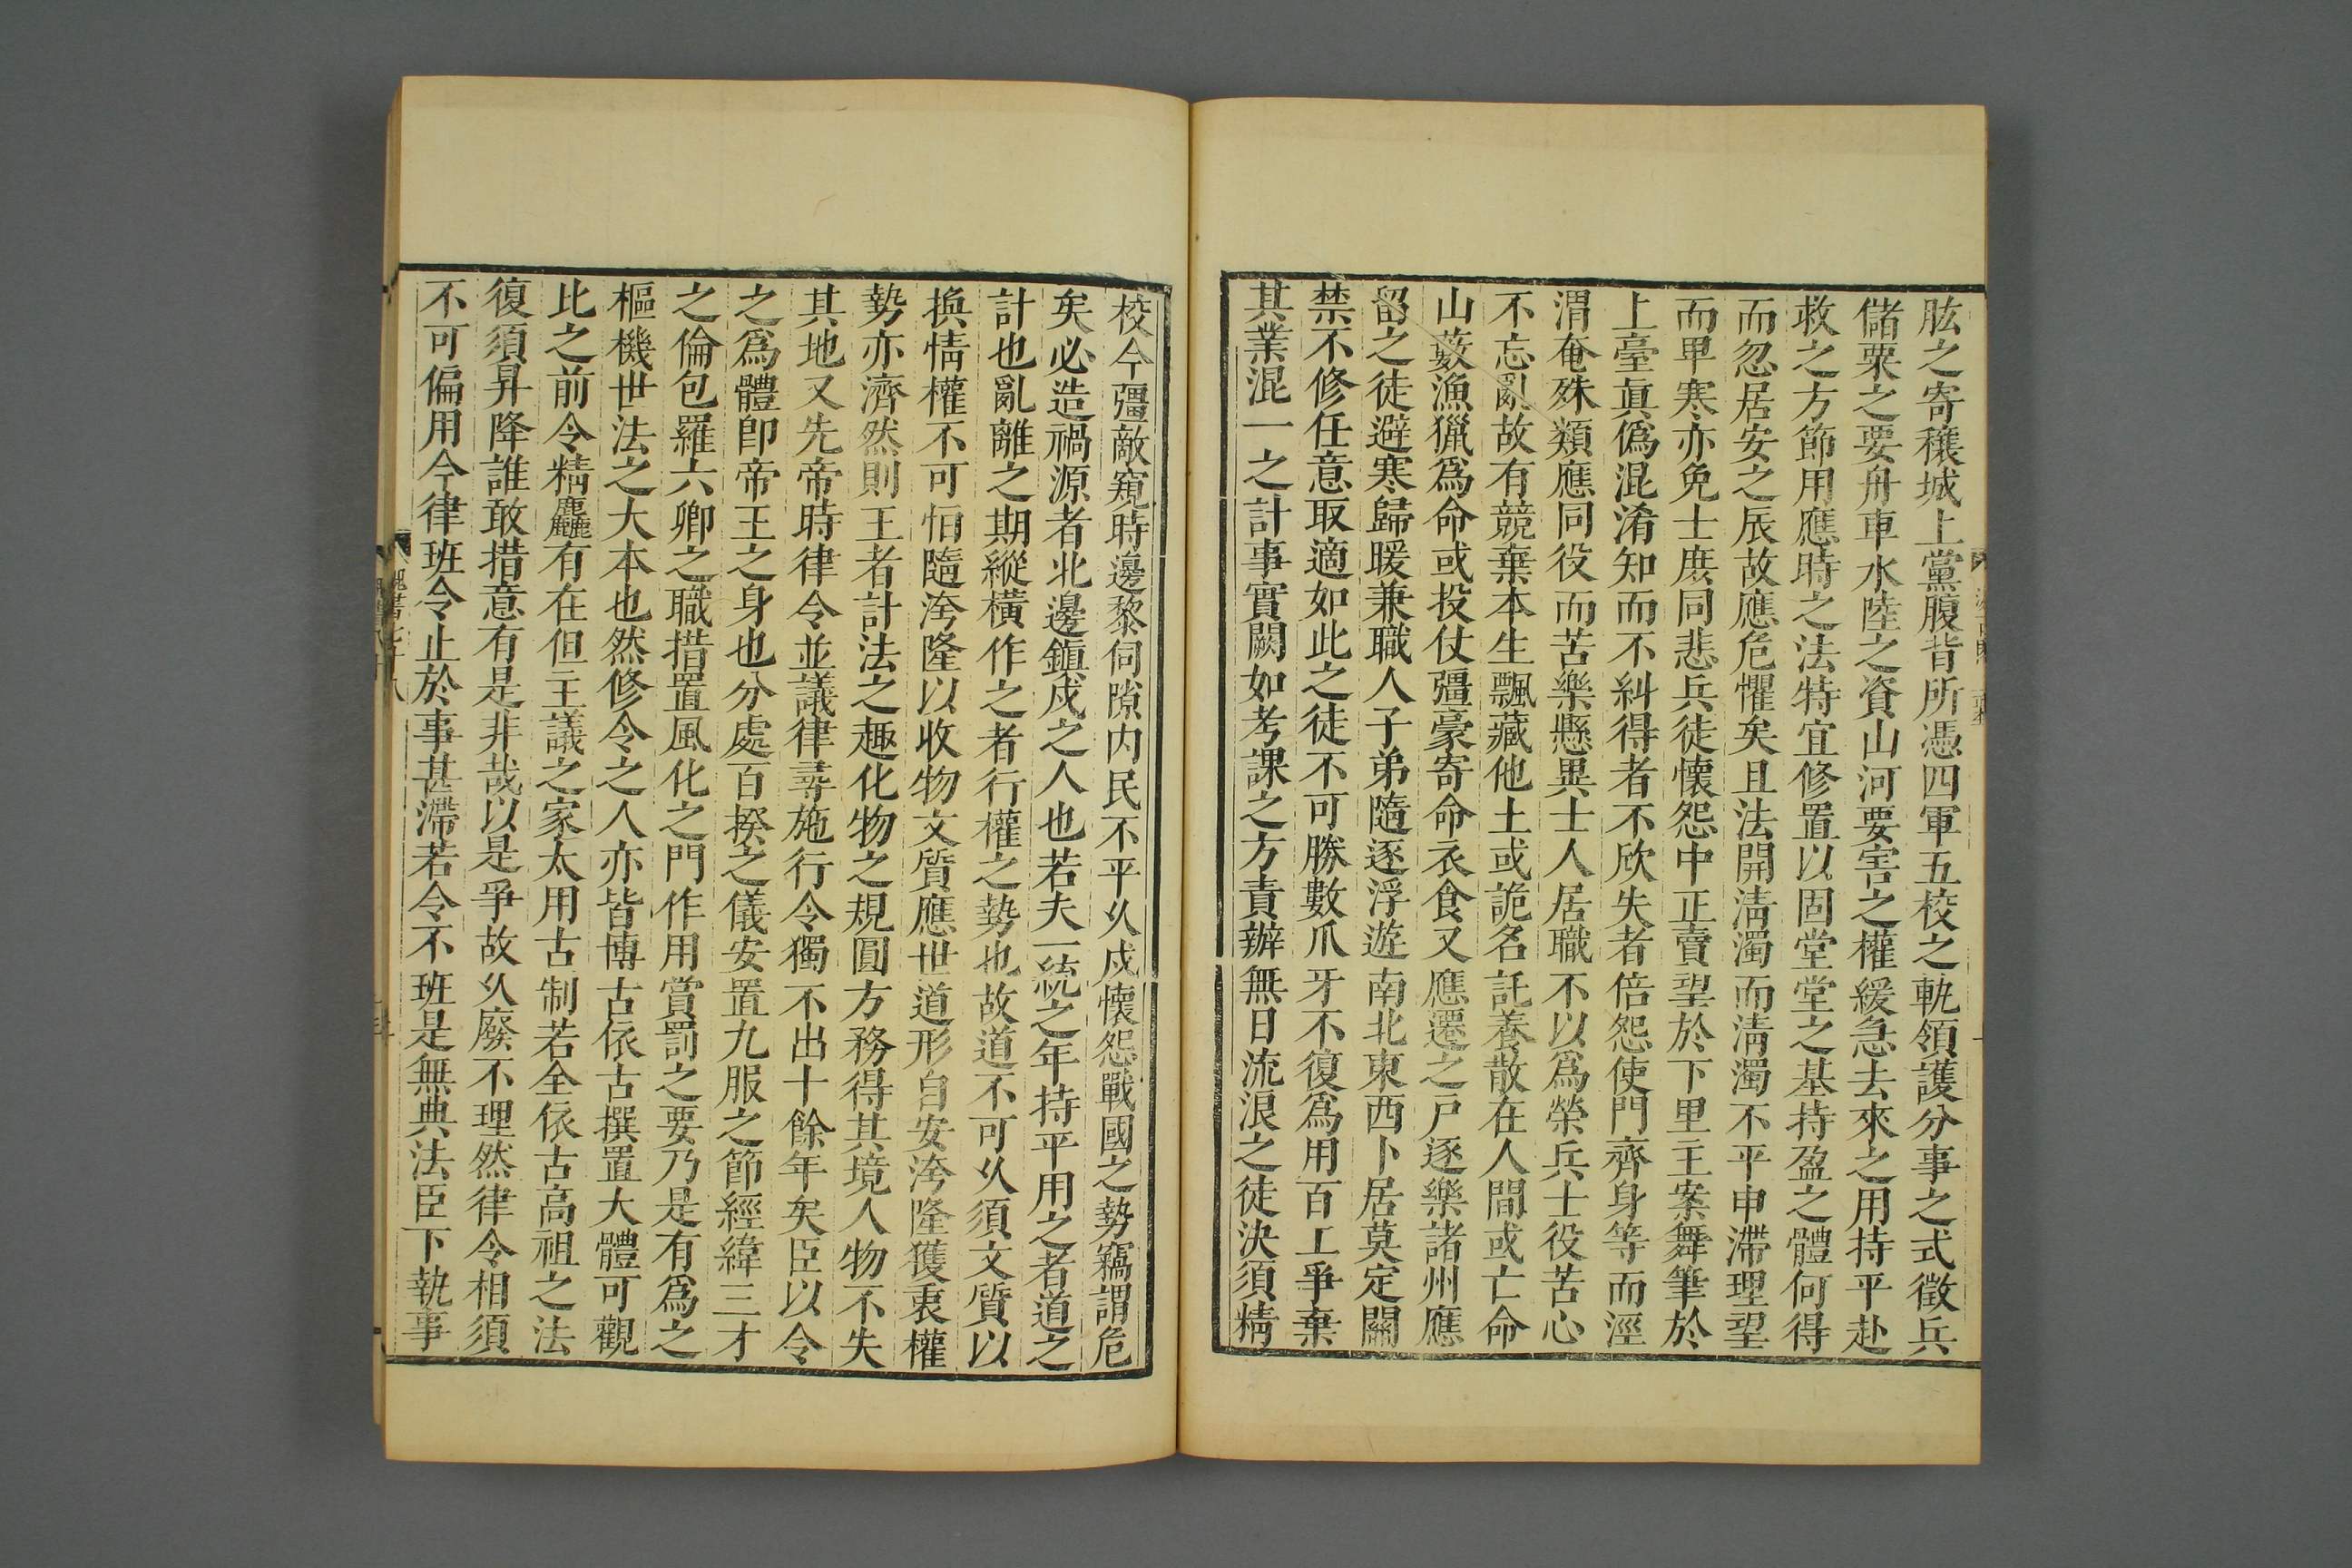 肱之寄穰城上黨腹背所憑四軍五校之軌領護分事之式徵兵
儲粟之要舟車水陸之資山河要害之權緩急去來之用持平赴
救之方節用應時之法特宜修置以固堂堂之基持盈之體何得
而忽居安之辰故應危懼矣且法開淸濁而淸濁不平申滯理望
而𤰞寒亦免士庶同悲兵徒懷怨中正賣望於下里主案舞筆於
上臺眞僞混淆知而不糾得者不欣失者倍怨使門齊身等而涇
渭奄殊類應同役而苦樂懸異士人居職不以爲榮兵士役苦心
不忘亂故有競棄本生飄藏他土或詭名託養散在人間或亡命
山藪漁獵爲命或投仗彊豪寄命衣食又應遷之戸逐樂諸州應
留之徒避寒歸暖兼職人子弟隨逐浮遊南北東西卜居莫定關
禁不修任意取適如此之徒不可勝數爪牙不復爲用百工爭棄
其業混一之計事實闕如考課之方責辦無日流浪之徒決須精
校今彊敵窺時邊黎伺隙内民不平久戍懷怨戰國之勢竊謂危
矣必造禍源者北邊鎭戍之人也若夫一統之年持平用之者道之
計也亂離之期縱橫作之者行權之勢也故道不可久須文質以
換情權不可怕隨洿隆以收物文質應世道形自安洿隆獲衷權
勢亦濟然則王者計法之趣化物之規圓方務得其境人物不失
其地又先帝時律令並議律尋施行令獨不出十餘年矣臣以令
之爲體卽帝王之身也分處百揆之儀安置九服之節經緯三才
之倫包羅六卿之職措置風化之門作用賞罰之要乃是有爲之
樞機世法之大本也然修令之人亦皆博古依古撰置大體可觀
比之前令精麤有在但主議之家太用古制若全依古高祖之法
復須昇降誰敢措意有是非哉以是爭故久廢不理然律令相須
不可偏用今律班令止於事甚滯若令不班是無典法臣下執事